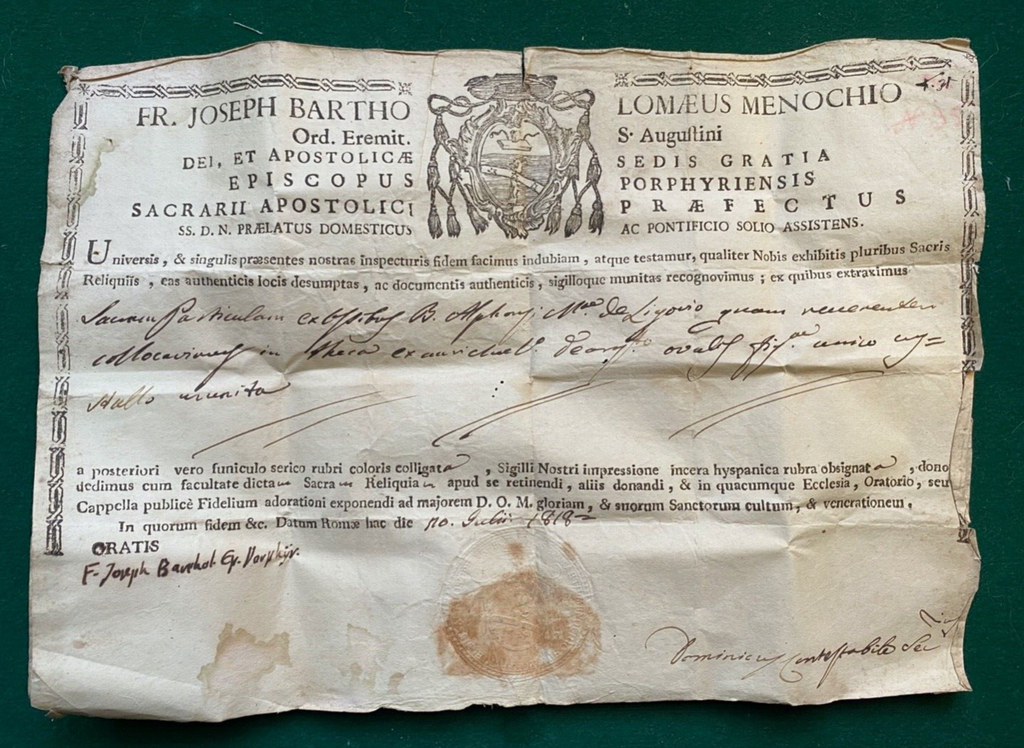 FR. JOSEPH BARTHO LOMÆUS MENOCHIO
Ord. Eremit. S. Augustini
DEI, ET APOSTOLICÆ SEDIS GRATIA
EPISCOPUS PORPHYRIENSIS
SACRARII APOSTOLICI PRÆFECTUS
SS. D. N. PRÆLATUS DOMESTICUS AC PONTIFICIO SOLIO ASSISTENS.
Universis, & singulis præsentes nostras inspecturis fidem facimus indubiam, atque testamur, qualiter Nobis exhibitis pluribus Sacris
Reliquiis, eas authenticis locis desumptas, ac documentis authenticis, sigilloque munitas recognovimus; ex quibus extraximus
Sacram Particulam ex Ossibus B. Alphonsi Mae de Ligorio quam reverenter
collocavimus in theca ex aurichal. ovalis fig. unico cry=
stallo munita
a posteriori vero funiculo serico rubri coloris colligata, Sigilli Nostri impressione incera hyspanica rubra obsignata, dono
dedimus cum facultate dictam Sacram Reliquiam apud se retinendi, aliis donandi, & in quacumque Ecclesia, Oratorio, seu
Cappella publicè Fidelium adorationi exponendi ad majorem D. O. M. gloriam, & suorum Sanctorum cultum, & venerationem.
In quorum fidem &c. Datum Romæ hac die 10. Julii 1818
ORATIS
F. Joseph Barthol. Ep. Porphyr.
Dominicus Contestabile Sec